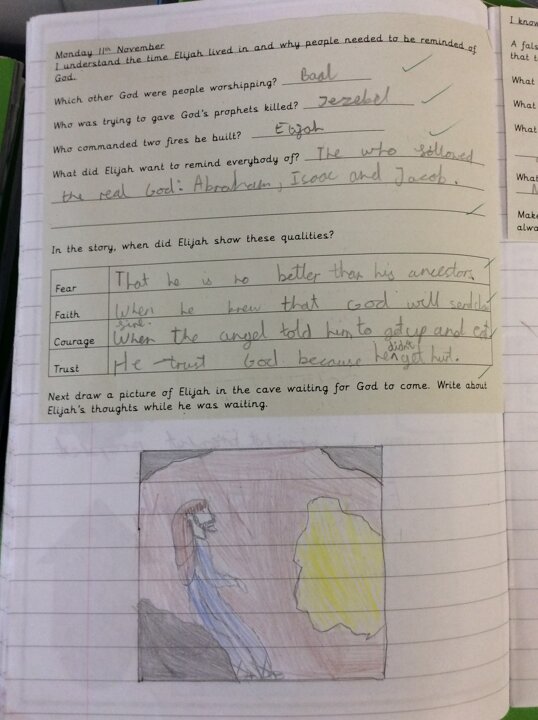 Monday 11th November
I understand the time Elijah lived in and why people needed to be reminded of
God.
Which other God were people worshipping? Baal
Who was trying to gave God's prophets killed? Jezebel
Who commanded two fires be built? Elijah
What did Elijah want to remind everybody of? The who followed
the real God: Abraham, Isaac and Jacob.
In the story, when did Elijah show these qualities?
Fear That he is no better than his ancestors.
Faith When he knew that God will send
Courage When the angel told him to get up and eat
Trust He trust God because he didn't get hurt.
Next draw a picture of Elijah in the cave waiting for God to come. Write about
Elijah's thoughts while he was waiting.
I know
A fals
that t
What
What
What
What
Make
alwa